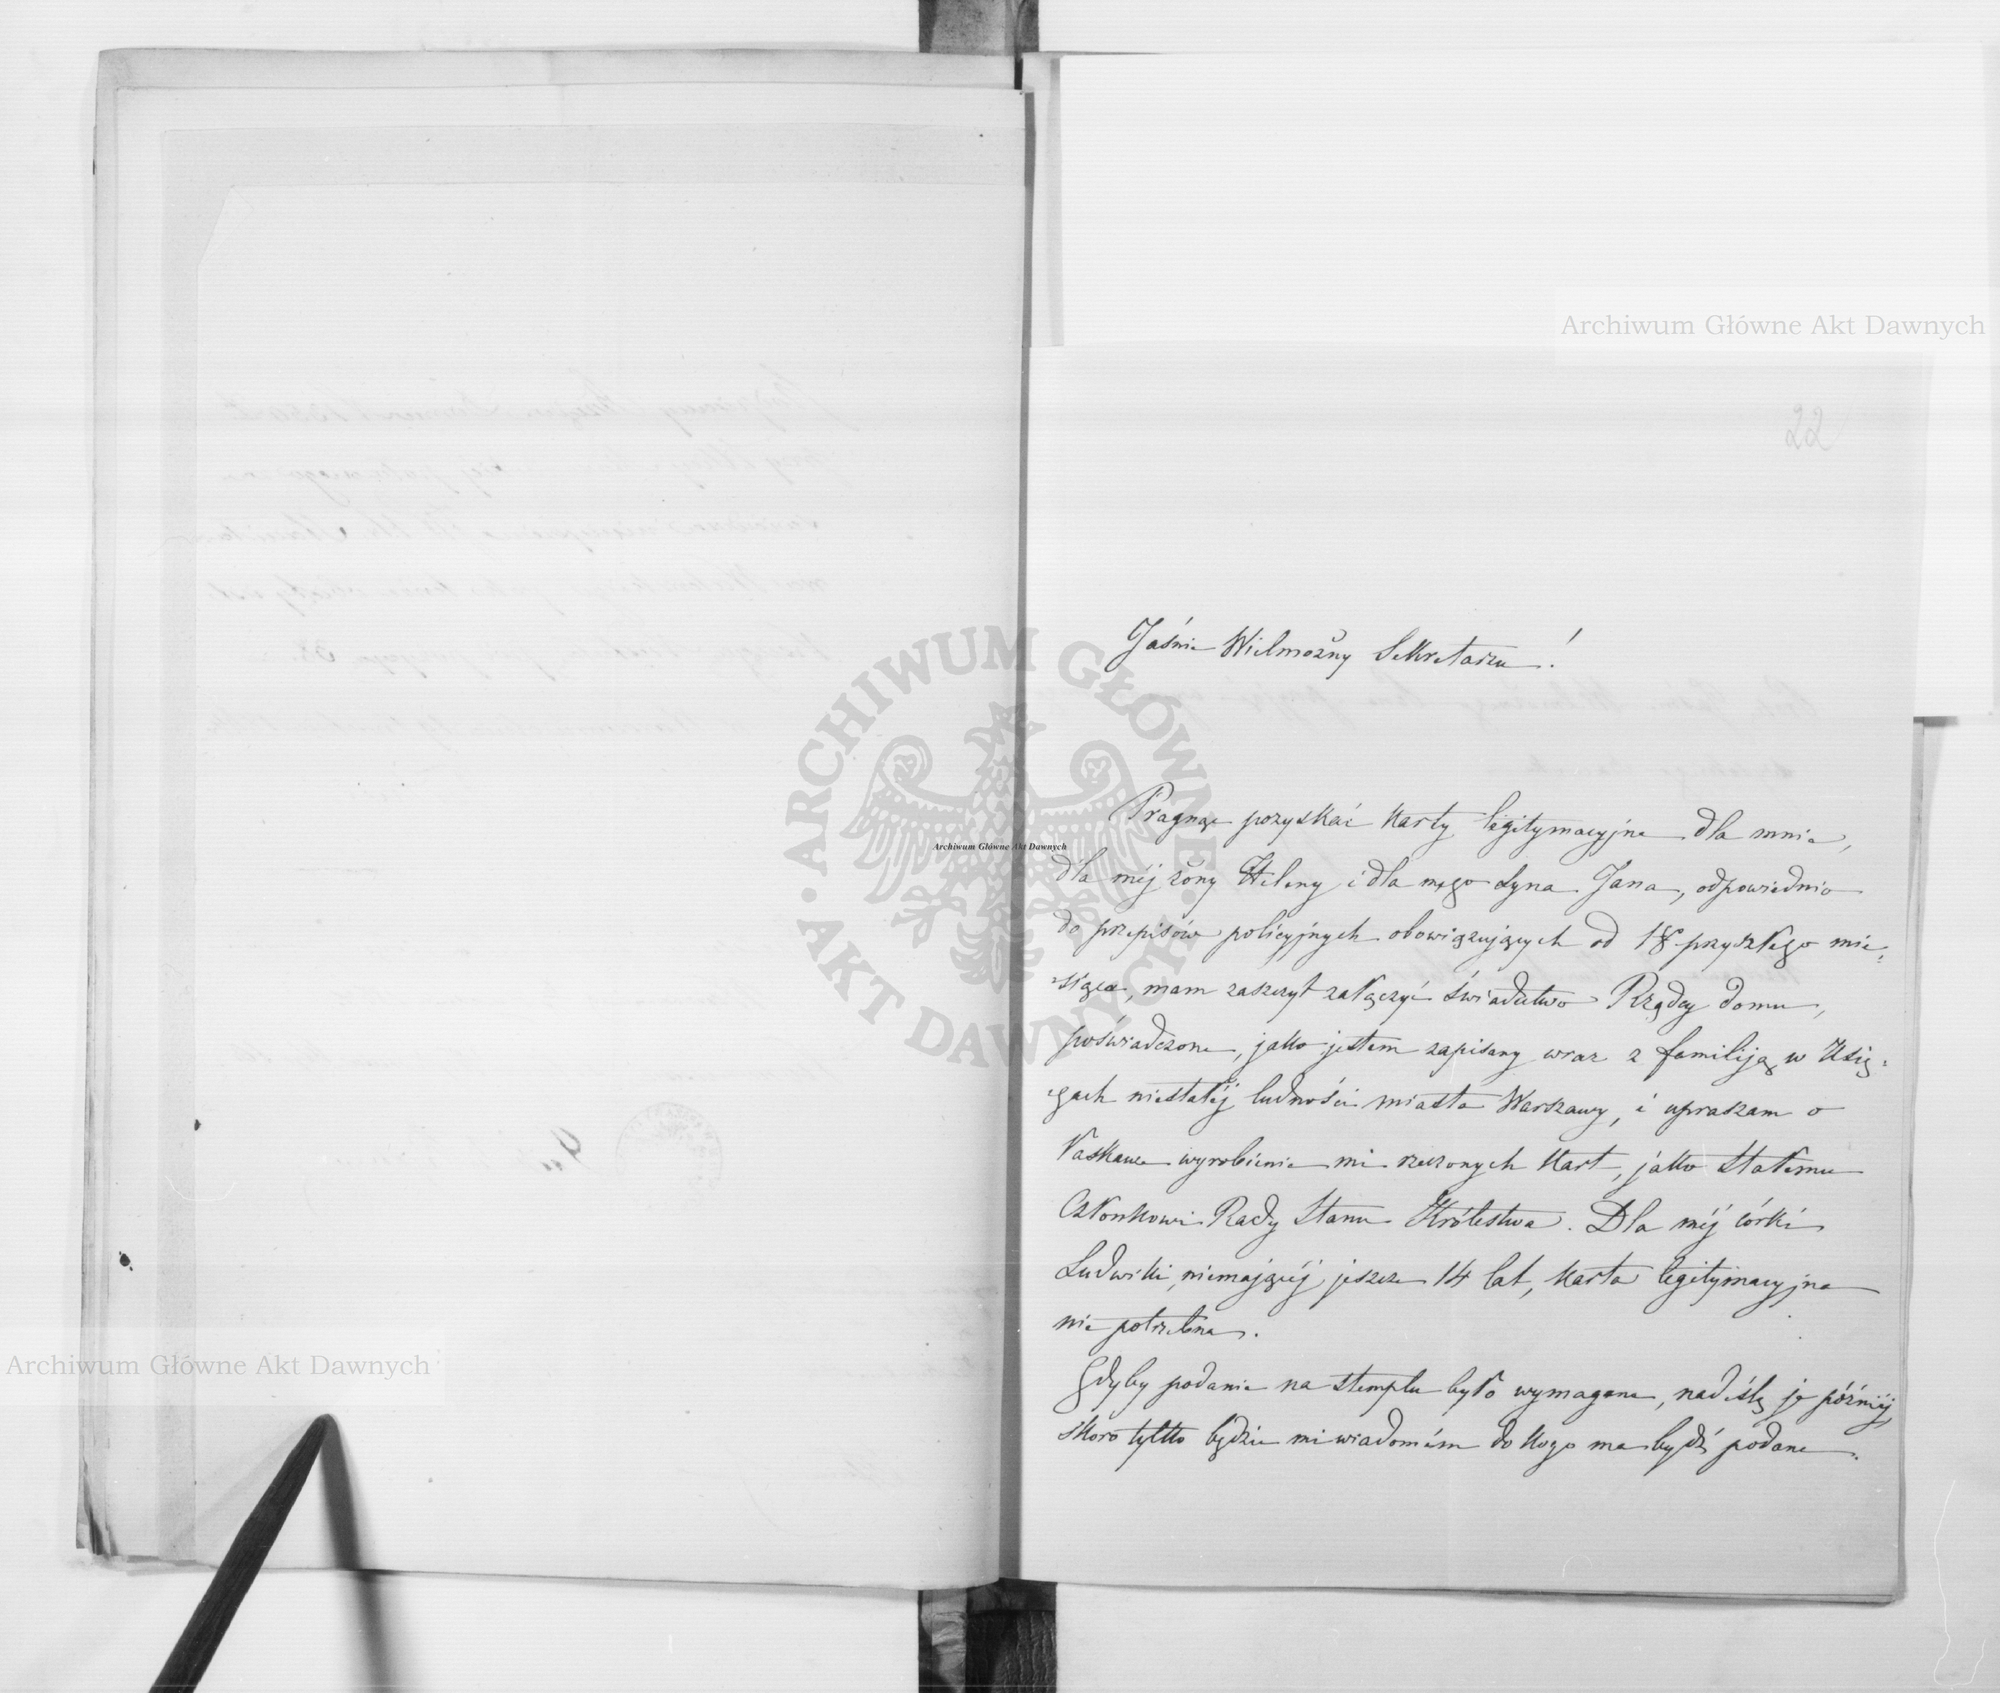 Archiwum Główne Akt Dawnych
22
Jaśnie Wielmożny Sekretarzu!
Pragnąc pozyskać karty legitymacyjne dla mnie,
dla méj żony Heleny i dla mego syna Jana, odpowiednio
do przepisów policyjnych obowiązujących od 18 przyszłego mie-
siąca, mam zaszczyt załączyć świadectwo Rządcy domu,
poświadczone, jako jestem zapisany wraz z familiją w Księ-
gach niestałéj ludności miasta Warszawy, i upraszam o
łaskawe wyrobienie mi rzeczonych kart, jako stałemu
Członkowi Rady Stanu Królestwa. Dla méj córki
Ludwiki, niemającéj jeszcze 14 lat, karta legitymacyjna
nie potrzebna.
Gdyby podanie na stemplu było wymagane, nadeślę je późniéj,
skoro tylko będzie mi wiadomém do kogo ma bydź podane.
ARCHIWUM GŁÓWNE AKT DAWNYCH
Archiwum Główne Akt Dawnych
Archiwum Główne Akt Dawnych